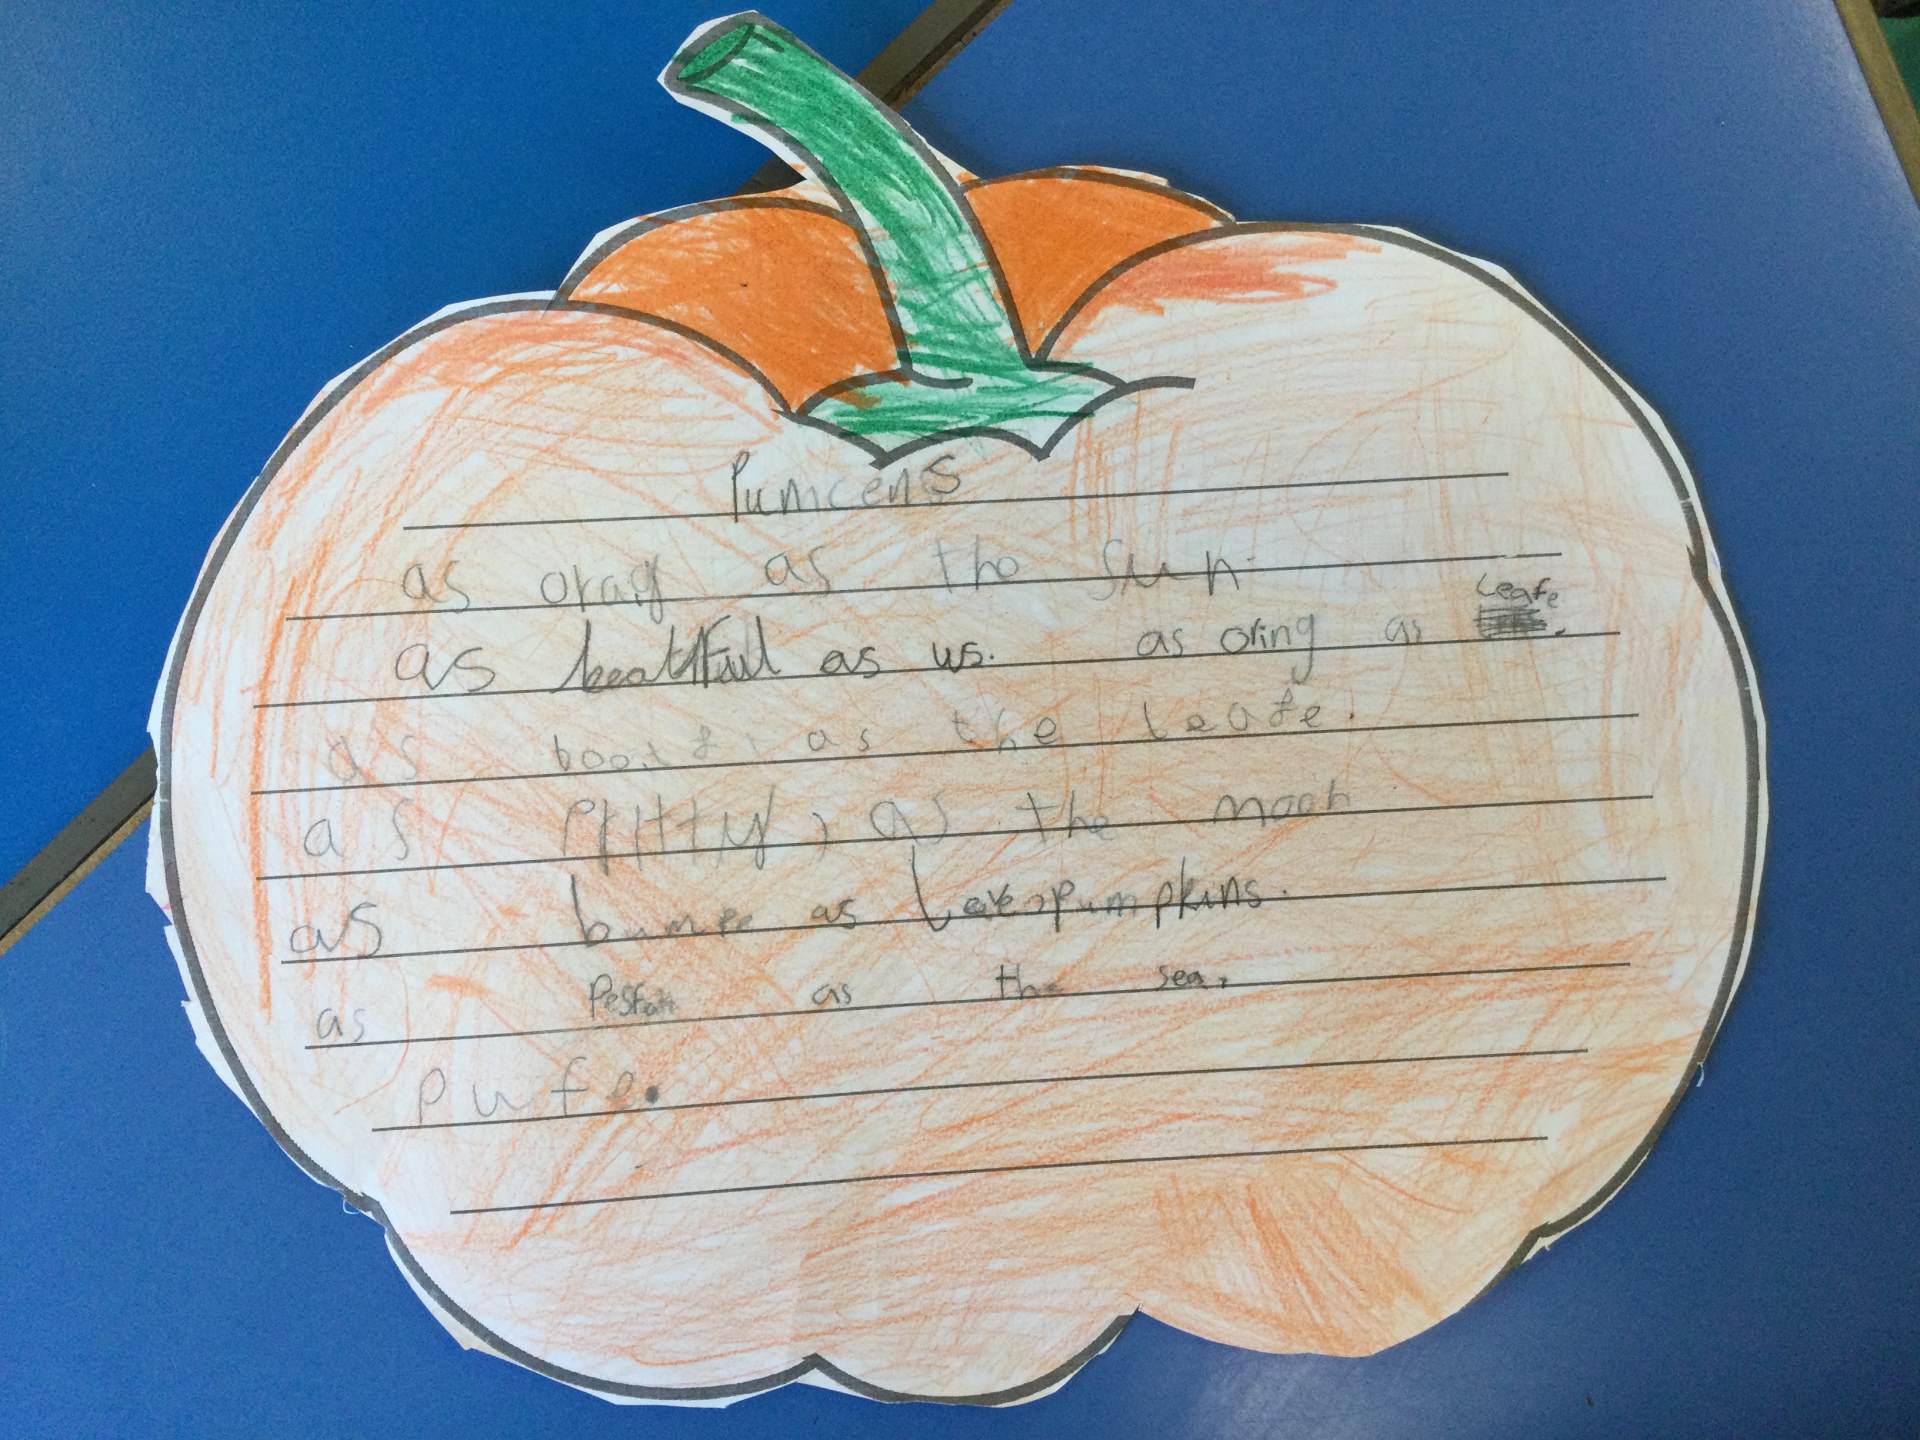 Pumcens
as orag as the sun.
as beatfful as us. as oring as leafe.
as as the leafe.
as as the moon
as bumpe as Leave pumpkins.
as as the sea.
pufe.